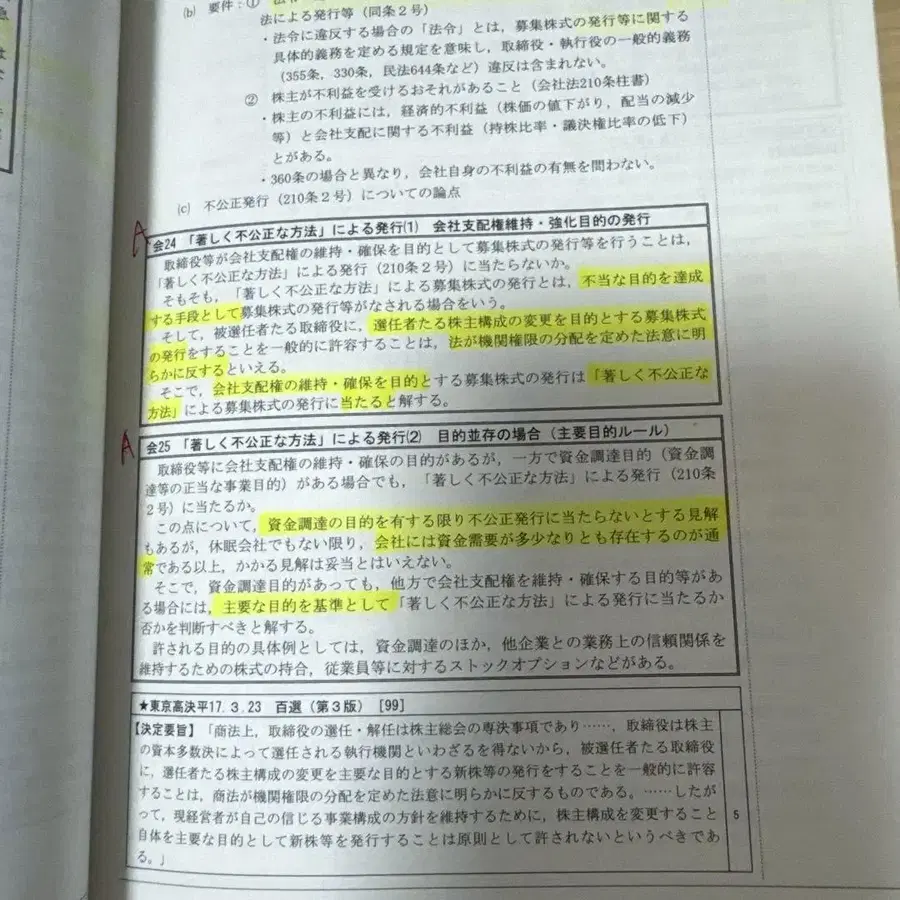 (b) 要件：①
法による発行等（同条２号）
・法令に違反する場合の「法令」とは，募集株式の発行等に関する
具体的義務を定める規定を意味し，取締役・執行役の一般的義務
（355条，330条，民法644条など）違反は含まれない。
② 株主が不利益を受けるおそれがあること（会社法210条柱書）
・株主の不利益には，経済的不利益（株価の値下がり，配当の減少
等）と会社支配に関する不利益（持株比率・議決権比率の低下）
とがある。
・360条の場合と異なり，会社自身の不利益の有無を問わない。
(c) 不公正発行（210条２号）についての論点
A
会24 「著しく不公正な方法」による発行⑴ 会社支配権維持・強化目的の発行
取締役等が会社支配権の維持・確保を目的として募集株式の発行等を行うことは，
「著しく不公正な方法」による発行（210条２号）に当たらないか。
そもそも，「著しく不公正な方法」による募集株式の発行とは，不当な目的を達成
する手段として募集株式の発行等がなされる場合をいう。
そして，被選任者たる取締役に，選任者たる株主構成の変更を目的とする募集株式
の発行をすることを一般的に許容することは，法が機関権限の分配を定めた法意に明
らかに反するといえる。
そこで，会社支配権の維持・確保を目的とする募集株式の発行は「著しく不公正な
方法」による募集株式の発行に当たると解する。
A
会25 「著しく不公正な方法」による発行⑵ 目的並存の場合（主要目的ルール）
取締役等に会社支配権の維持・確保の目的があるが，一方で資金調達目的（資金調
達等の正当な事業目的）がある場合でも，「著しく不公正な方法」による発行（210条
２号）に当たるか。
この点について，資金調達の目的を有する限り不公正発行に当たらないとする見解
もあるが，休眠会社でもない限り，会社には資金需要が多少なりとも存在するのが通
常である以上，かかる見解は妥当とはいえない。
そこで，資金調達目的があっても，他方で会社支配権を維持・確保する目的等があ
る場合には，主要な目的を基準として「著しく不公正な方法」による発行に当たるか
否かを判断すべきと解する。
許される目的の具体例としては，資金調達のほか，他企業との業務上の信頼関係を
維持するための株式の持合，従業員等に対するストックオプションなどがある。
★東京高決平17.3.23 百選（第３版）［99］
【決定要旨】「商法上，取締役の選任・解任は株主総会の専決事項であり……，取締役は株主
の資本多数決によって選任される執行機関といわざるを得ないから，被選任者たる取締役
に，選任者たる株主構成の変更を主要な目的とする新株等の発行をすることを一般的に許容
することは，商法が機関権限の分配を定めた法意に明らかに反するものである。……したが
って，現経営者が自己の信じる事業構成の方針を維持するために，株主構成を変更すること
自体を主要な目的として新株等を発行することは原則として許されないというべきであ
る。」
5